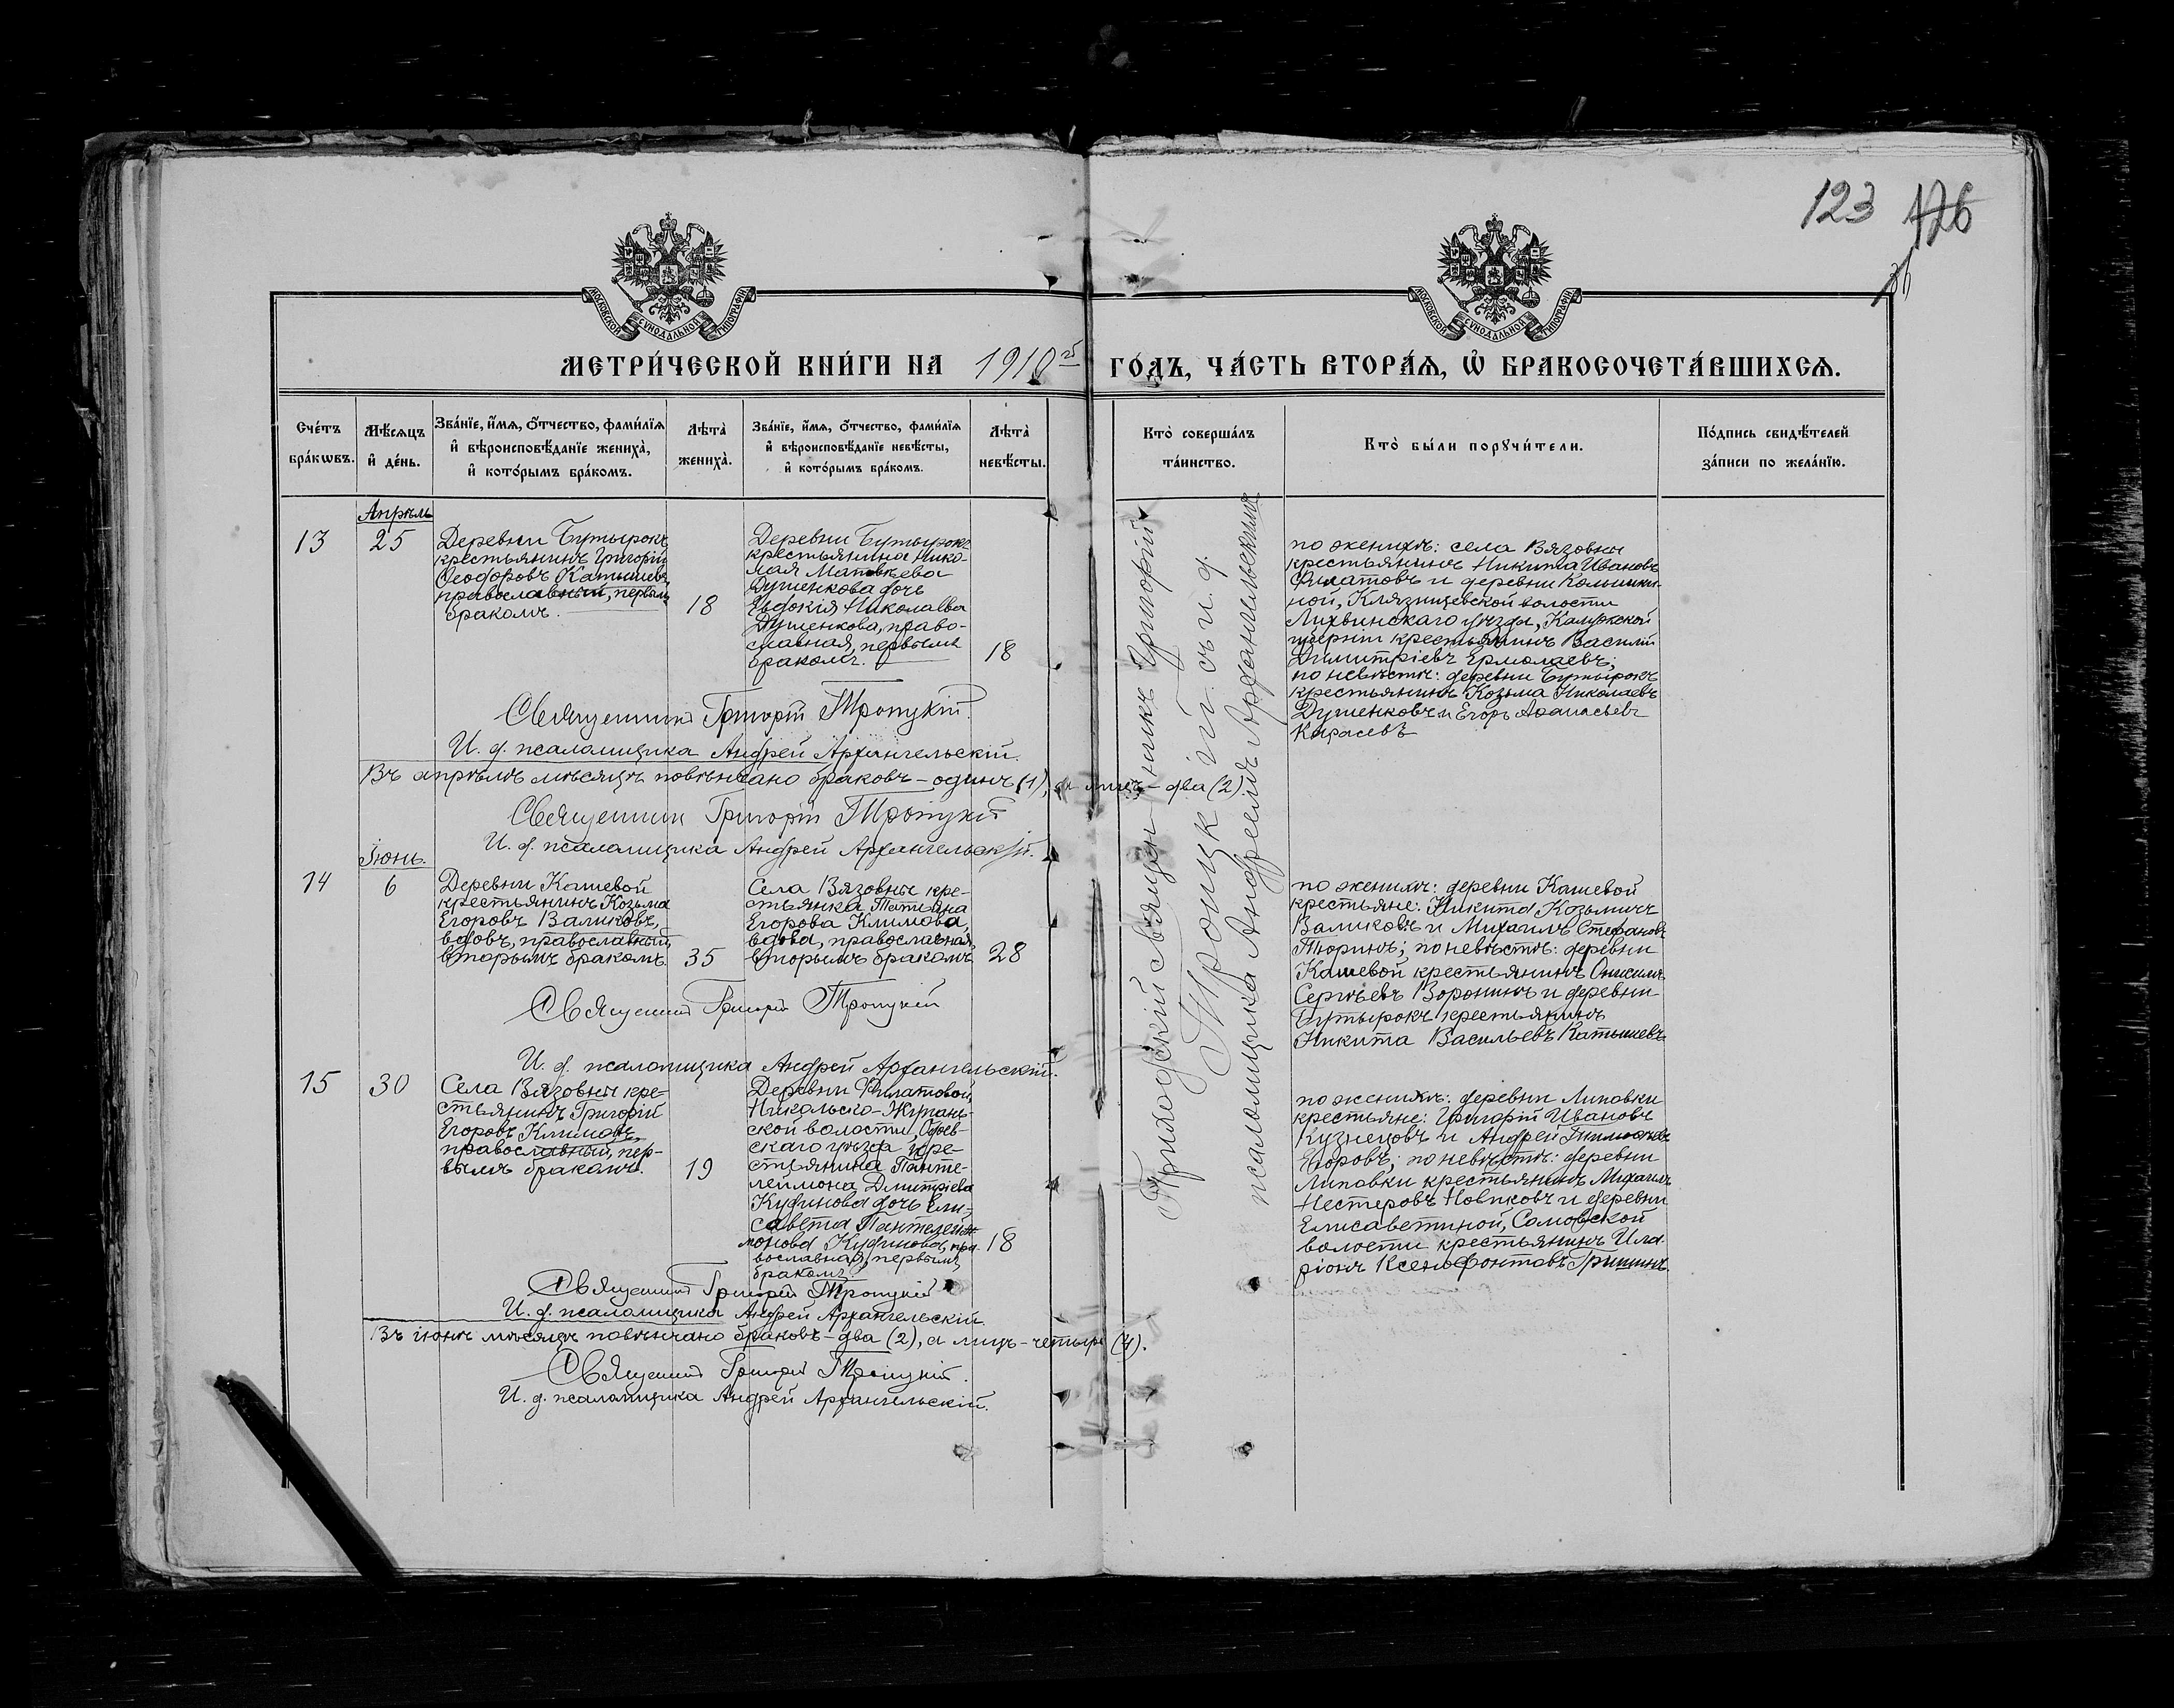 123 126
МОСКОВСКОЙ СѴНОДАЛЬНОЙ ТИПОГРАФІИ
МОСКОВСКОЙ СѴНОДАЛЬНОЙ ТИПОГРАФІИ
МЕТРИ́ЧЕСКОЙ КНИ́ГИ НА 1910 ГО́ДЪ, ЧА́СТЬ ВТОРА́Ѧ, Ѡ҆ БРАКОСОЧЕТА́ВШИХСѦ.
Сче́тъ
бра́кѡвъ.
Мѣ́сѧцъ
и҆ де́нь.
Зва́нїе, и҆́мѧ, ѻ҆́тчество, фами́лїѧ
и҆ вѣроисповѣ́данїе жениха̀,
и҆ кото́рымъ бра́комъ.
Лѣта̀
жениха̀.
Зва́нїе, и҆́мѧ, ѻ҆́тчество, фами́лїѧ
и҆ вѣроисповѣ́данїе невѣ́сты,
и҆ кото́рымъ бра́комъ.
Лѣта̀
невѣ́сты.
Кто̀ соверша́лъ
та́инство.
Кто̀ бы́ли порꙋчи́тели.
По́дпись свидѣ́телей
за́писи по жела́нїю.
Апрѣль
13
25
Деревни Бутырокъ
крестьянинъ Григорій
Ѳеодоровъ Катышевъ,
православный, первымъ
бракомъ.
18
Деревни Бутырокъ
крестьянина Нико-
лая Матвѣева
Душенкова дочь
Евдокія Николаева
Душенкова, право-
славная, первымъ
бракомъ.
18
по женихѣ: села Вязовны
крестьянинъ Никита Ивановъ
Филатовъ и деревни Колышки-
ной, Клязнищевской волости
Лихвинскаго уѣзда, Калужской
губерніи крестьянинъ Василій
Димитріевъ Ермолаевъ;
по невѣстѣ: деревни Бутырокъ
крестьянинъ Козьма Николаевъ
Душенковъ и Егоръ Аѳанасьевъ
Карасевъ
Священникъ Григорій Троицкій.
И. д. псаломщика Андрей Архангельскій.
Въ апрѣлѣ мѣсяцѣ повѣнчано браковъ – одинъ (1), а лицъ – два (2)
Священникъ Григорій Троицкій
И. д. псаломщика Андрей Архангельскій.
Приходскій священникъ Григорій
Троицкій съ и. д.
псаломщика Андреемъ Архангельскимъ
Іюнь.
14
6
Деревни Кашевой
крестьянинъ Козьма
Егоровъ Валиковъ,
вдовъ, православный,
вторымъ бракомъ.
35
Села Вязовны кре-
стьянка Татьяна
Егорова Климова,
вдова, православная,
вторымъ бракомъ
28
по женихѣ: деревни Кашевой
крестьяне: Никита Козьмичъ
Валиковъ и Михаилъ Стефановъ
Тюринъ; по невѣстѣ: деревни
Кашевой крестьянинъ Онисимъ
Сергѣевъ Воронинъ и деревни
Бутырокъ крестьянинъ
Никита Васильевъ Катышевъ
Священникъ Григорій Троицкій
И. д. псаломщика Андрей Архангельскій.
15
30
Села Вязовны кре-
стьянинъ Григорій
Егоровъ Климовъ,
православный, пер-
вымъ бракомъ.
19
Деревни Филатовой,
Никольско-Жупань-
ской волости, Одоев-
скаго уѣзда кре-
стьянина Панте-
леимона Дмитріева
Кудинова дочь Ели-
савета Пантелей-
монова Кудинова, пра-
вославная, первымъ
бракомъ
18
по женихѣ: деревни Липовки
крестьяне: Григорій Ивановъ
Кузнецовъ и Андрей Тимоѳеевъ
Егоровъ; по невѣстѣ: деревни
Липовки крестьянинъ Михаилъ
Нестеровъ Новиковъ и деревни
Елисаветиной, Сомовской
волости крестьянинъ Ила-
ріонъ Ксенофонтовъ Гришинъ.
Священникъ Григорій Троицкій
И. д. псаломщика Андрей Архангельскій.
Въ іюнѣ мѣсяцѣ повѣнчано браковъ – два (2), а лицъ – четыре (4).
Священникъ Григорій Троицкій.
И. д. псаломщика Андрей Архангельскій.